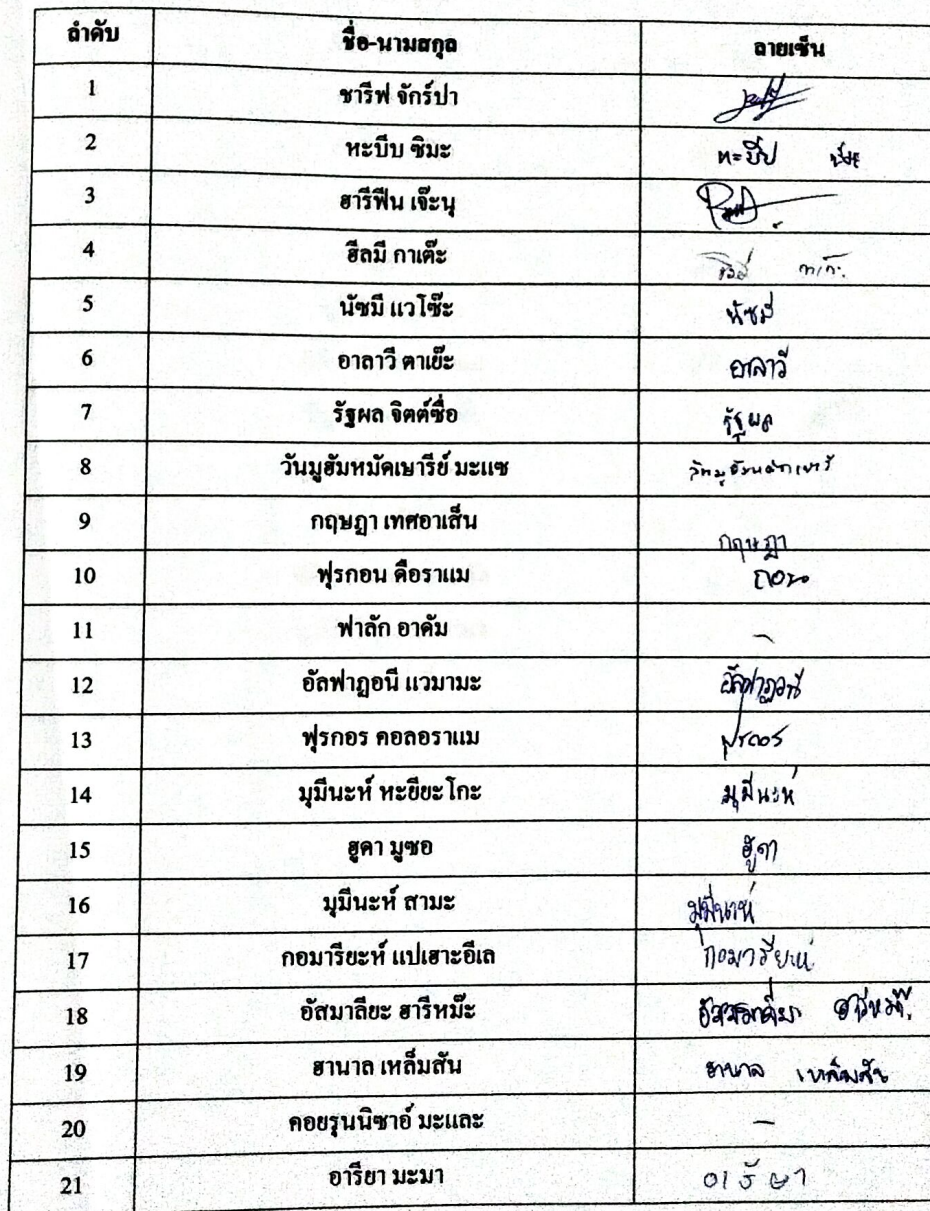 ลำดับ ชื่อ-นามสกุล ลายเซ็น
1 ชารีฟ จักร์ปา
2 หะบีบ ซิมะ หะบีบ ซิมะ
3 ฮารีฟีน เจ๊ะนุ
4 ฮีลมี กาเต๊ะ
5 นัซมี แวโซ๊ะ นัซมี
6 อาลาวี ตาเย๊ะ อาลาวี
7 รัฐผล จิตต์ซื่อ รัฐผล
8 วันมูฮัมหมัดเษารีย์ มะแซ
9 กฤษฎา เทศอาเส็น กฤษฎา
10 ฟุรกอน ดือราแม กอน
11 ฟาลัก อาดัม -
12 อัลฟาฏอนี แวมามะ อัลฟาฏอนี
13 ฟุรกอร คอลอราแม ฟุรกอร
14 มุมีนะห์ หะยียะโกะ มุมีนะห์
15 ฮูดา มูซอ ฮูดา
16 มุมีนะห์ สามะ มุมีนะห์
17 กอมารียะห์ แปเฮาะอีเล กอมารียะห์
18 อัสมาลียะ ฮารีหม๊ะ
19 ฮานาล เหล็มสัน ฮานาล เหล็มสัน
20 คอยรุนนิซาอ์ มะและ -
21 อารียา มะมา